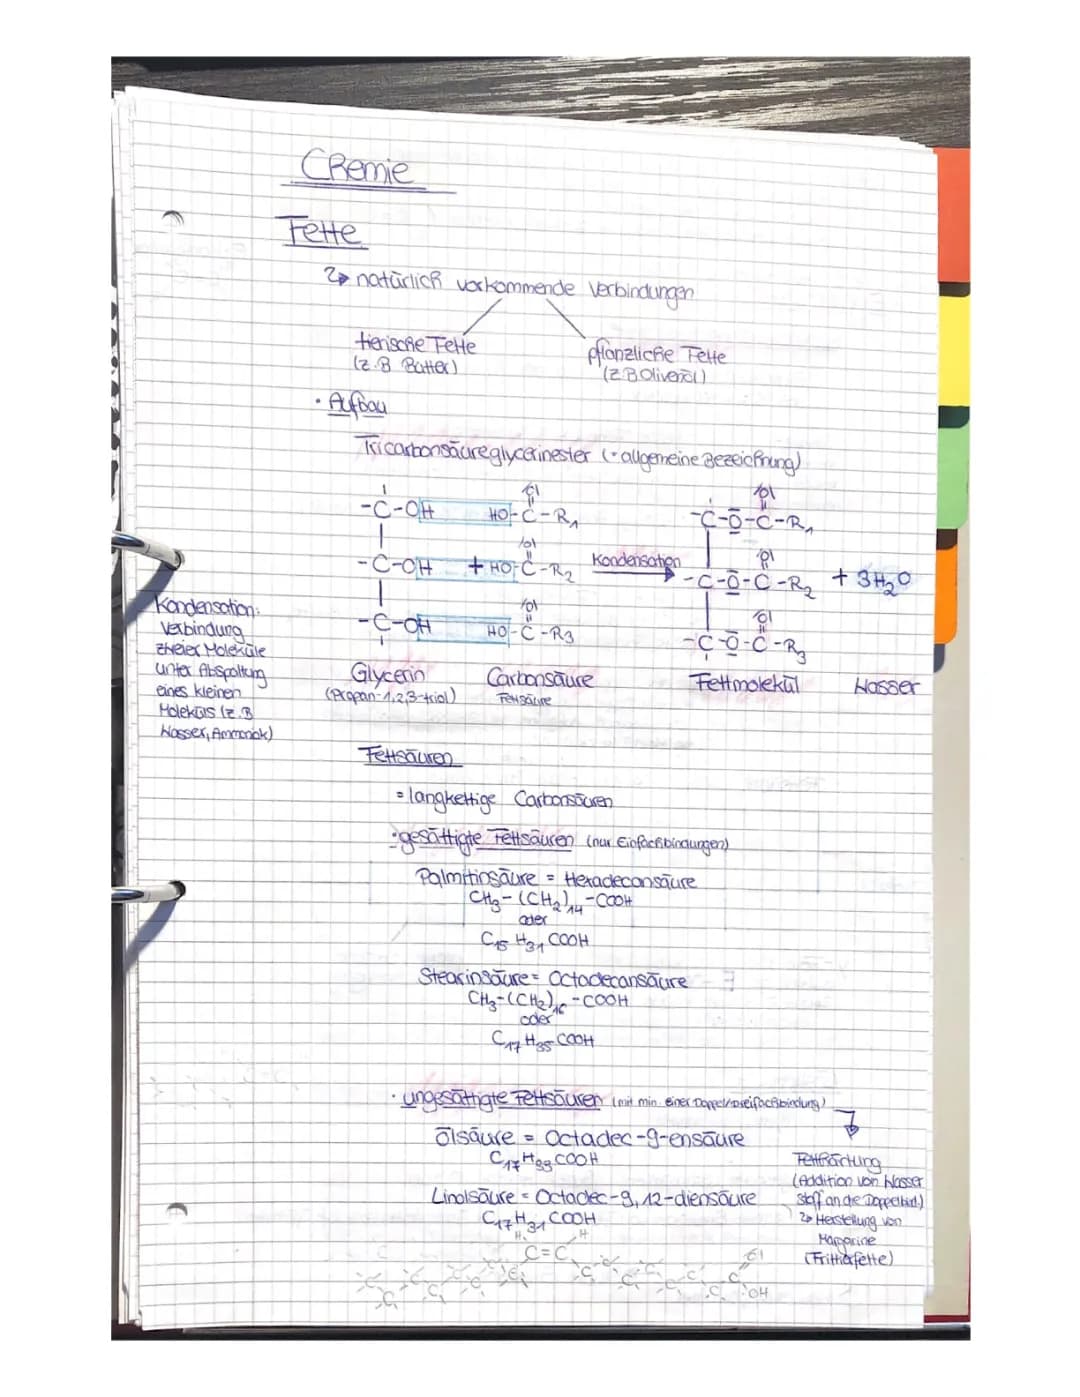 Chemie
Fette
↳ natürlich vorkommende Verbindungen
tierische Fette
(z.B Butter)
pflanzliche Fette
(z.B Olivenöl)
· Aufbau
Tricarbonsäureglycerinester (· allgemeine Bezeichnung)
-C-OH HO-C-R₁ -C-O-C-R₁
-C-OH + HO-C-R₂ Kondensation → -C-O-C-R₂ + 3H₂O
-C-OH HO-C-R₃ -C-O-C-R₃
Glycerin Carbonsäure Fettmolekül Wasser
(Propan-1,2,3-triol) Fettsäure
Kondensation:
Verbindung
zweier Moleküle
unter Abspaltung
eines kleinen
Moleküls (z.B
Wasser, Ammoniak)
Fettsäuren
= langkettige Carbonsäuren
· gesättigte Fettsäuren (nur Einfachbindungen)
Palmitinsäure = Hexadecansäure
CH₃-(CH₂)₁₄-COOH
oder
C₁₅H₃₁COOH
Stearinsäure = Octadecansäure
CH₃-(CH₂)₁₆-COOH
oder
C₁₇H₃₅COOH
· ungesättigte Fettsäuren (mit min. einer Doppel/Dreifachbindung)
Ölsäure = Octadec-9-ensäure
C₁₇H₃₃COOH
Linolsäure = Octadec-9,12-diensäure
C₁₇H₃₁COOH
Fetthärtung
(Addition von Wasser
stoff an die Doppelbind.)
↳ Herstellung von
Margarine
(Frittierfette)
H H
C=C
OH